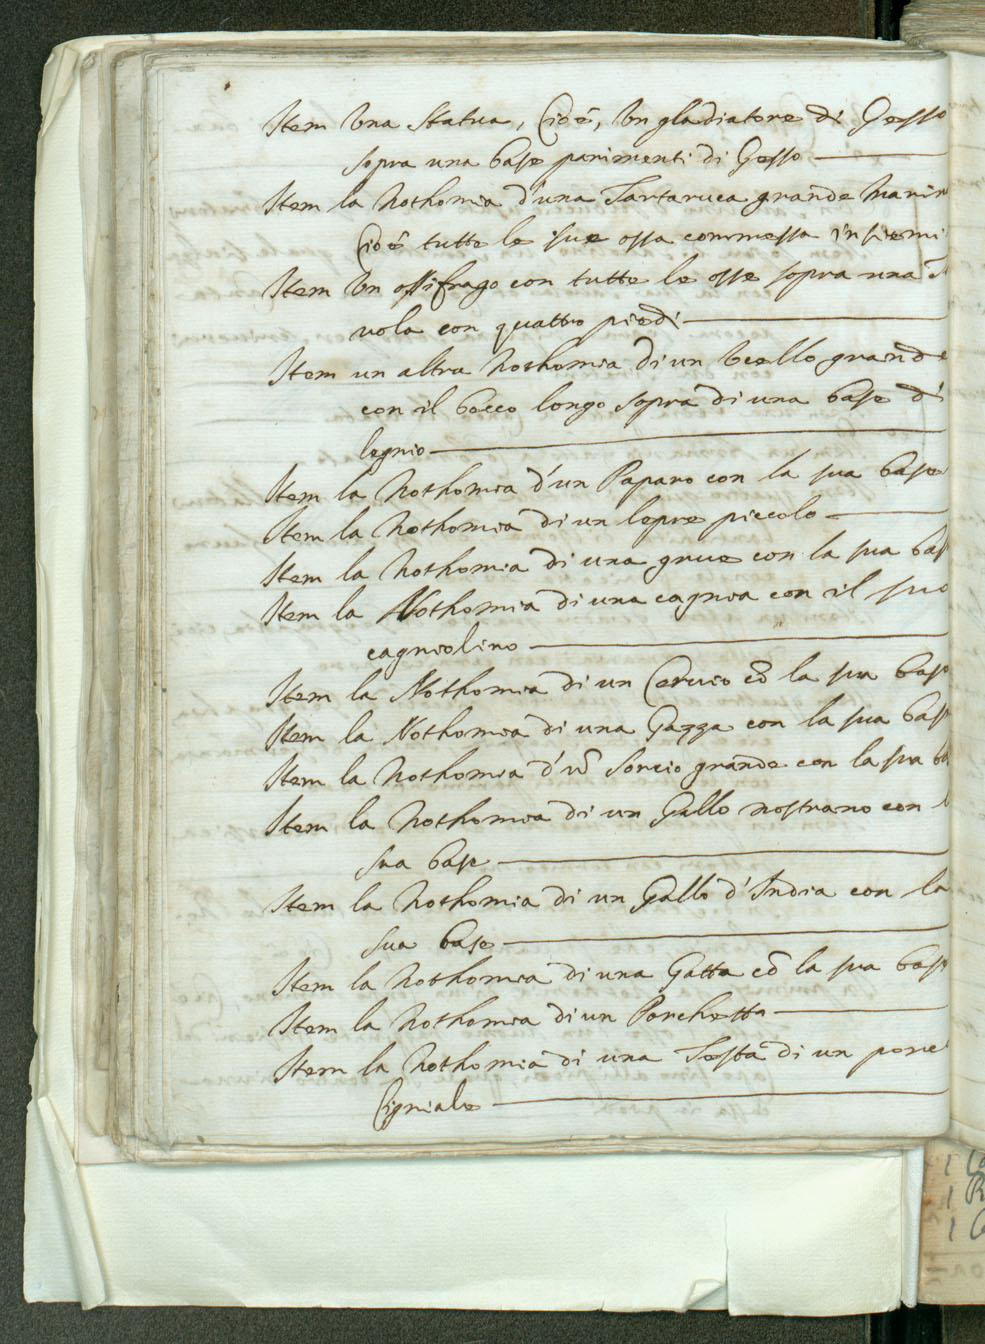 Item una statua, Cioè, un gladiatore di Gesso
sopra una base parimenti di Gesso
Item la Nothomia d'una Tartaruca grande Marin
Cioè tutte le sue ossa commessa insiemi
Item un ossifrago con tutte le osse sopra una
vola con quattro piedi
Item un altra Nothomia di un Ucello grande
con il becco longo sopra di una base di
legnio
Item la Nothomia d'un Paparo con la sua base
Item la Nothomia di un lepre piccolo
Item la Nothomia di una grue con la sua bas
Item la Nothomia di una cagnia con il suo
cagniolino
Item la Nothomia di un Cervio cõ la sua base
Item la Nothomia di una Gazza con la sua bas
Item la Nothomia d'ũ Sorcio grande con la sua ba
Item la Nothomia di un Gallo nostrano con l
sua base
Item la Nothomia di un Gallo d'India con la
sua base
Item la Nothomia di una Gatta cõ la sua bas
Item la Nothomia di un Porchetta
Item la Nothomia di una Testa di un porc
Cigniale